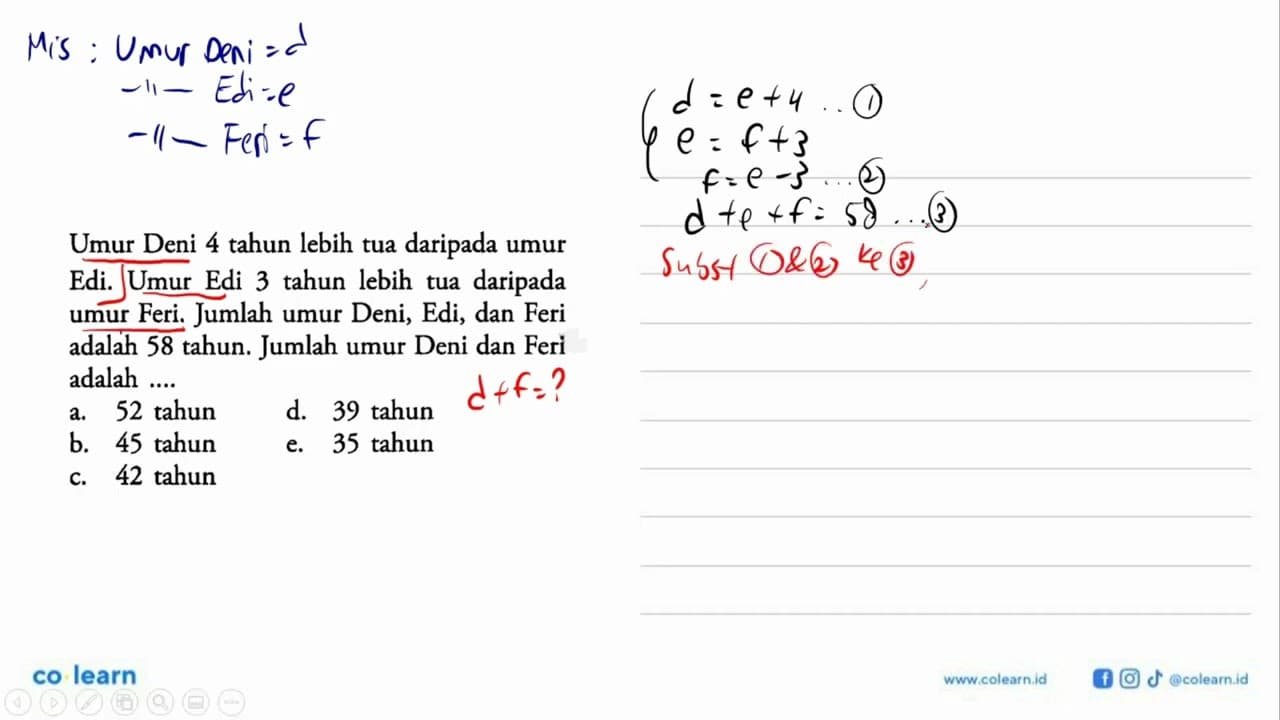 Mis : Umur Deni = d
-"- Edi = e
-"- Feri = f
d = e + 4 .. ①
e = f + 3
f = e - 3 ... ②
d + e + f = 58 ... ③
Subst ① & ② ke ③,
Umur Deni 4 tahun lebih tua daripada umur
Edi. Umur Edi 3 tahun lebih tua daripada
umur Feri. Jumlah umur Deni, Edi, dan Feri
adalah 58 tahun. Jumlah umur Deni dan Feri
adalah ....
d + f = ?
a. 52 tahun d. 39 tahun
b. 45 tahun e. 35 tahun
c. 42 tahun
co learn
www.colearn.id
@colearn.id